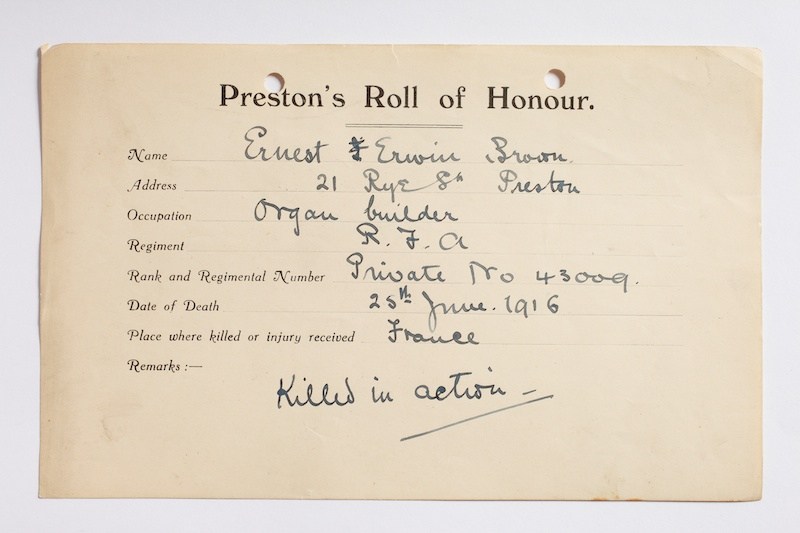 Preston's Roll of Honour.
Name Ernest Erwin Brown.
Address 21 Rye St Preston
Occupation Organ builder
Regiment R. F. A
Rank and Regimental Number Private No 43009.
Date of Death 25th June. 1916
Place where killed or injury received France
Remarks :—
Killed in action —